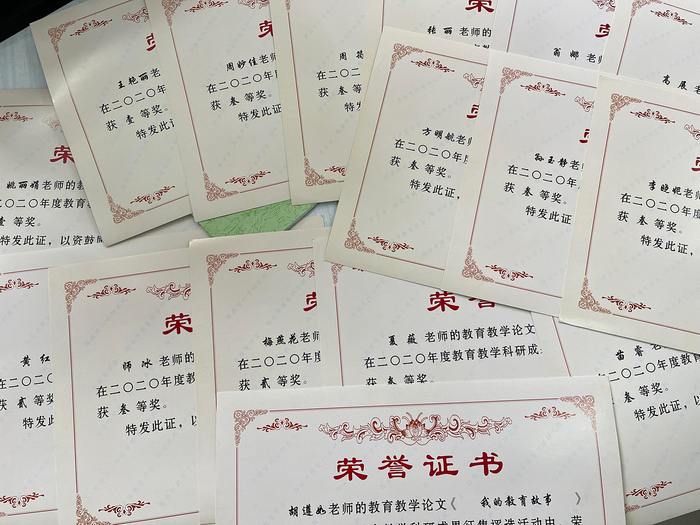 荣
王艳丽老
在二〇二〇年
获 壹 等奖。
特发此证
荣
周妙佳老师
在二〇二〇年度
获 叁 等奖。
特发此证，
周
在二〇二〇
获 叁 等
特发
荣
张丽老师的
翁娜老师的
高展老师
姚丽娟老师的教
二〇二〇年度教育教
壹 等奖。
特发此证，以资鼓励
方明毓老师
在二〇二〇年度
获 叁 等奖。
特发此证，
孙玉静老师
在二〇二〇年度
获 叁 等奖。
特发此证，
李晓妮老师的
在二〇二〇年度
获 叁 等奖。
特发此证，
黄红
在二〇二〇
获 贰 等奖
特发此
荣
师冰 老师的
在二〇二〇年度教
获 叁 等奖。
特发此证，以
梅燕花老师
在二〇二〇年度
获 贰 等奖。
荣誉
夏薇 老师的教育教学论文
在二〇二〇年度教育教学科研成
获 叁 等奖。
苗睿老师的
在二〇二〇年度教
获 叁 等奖。
特发此证，以
荣誉证书
胡道如老师的教育教学论文《 我的教育故事 》